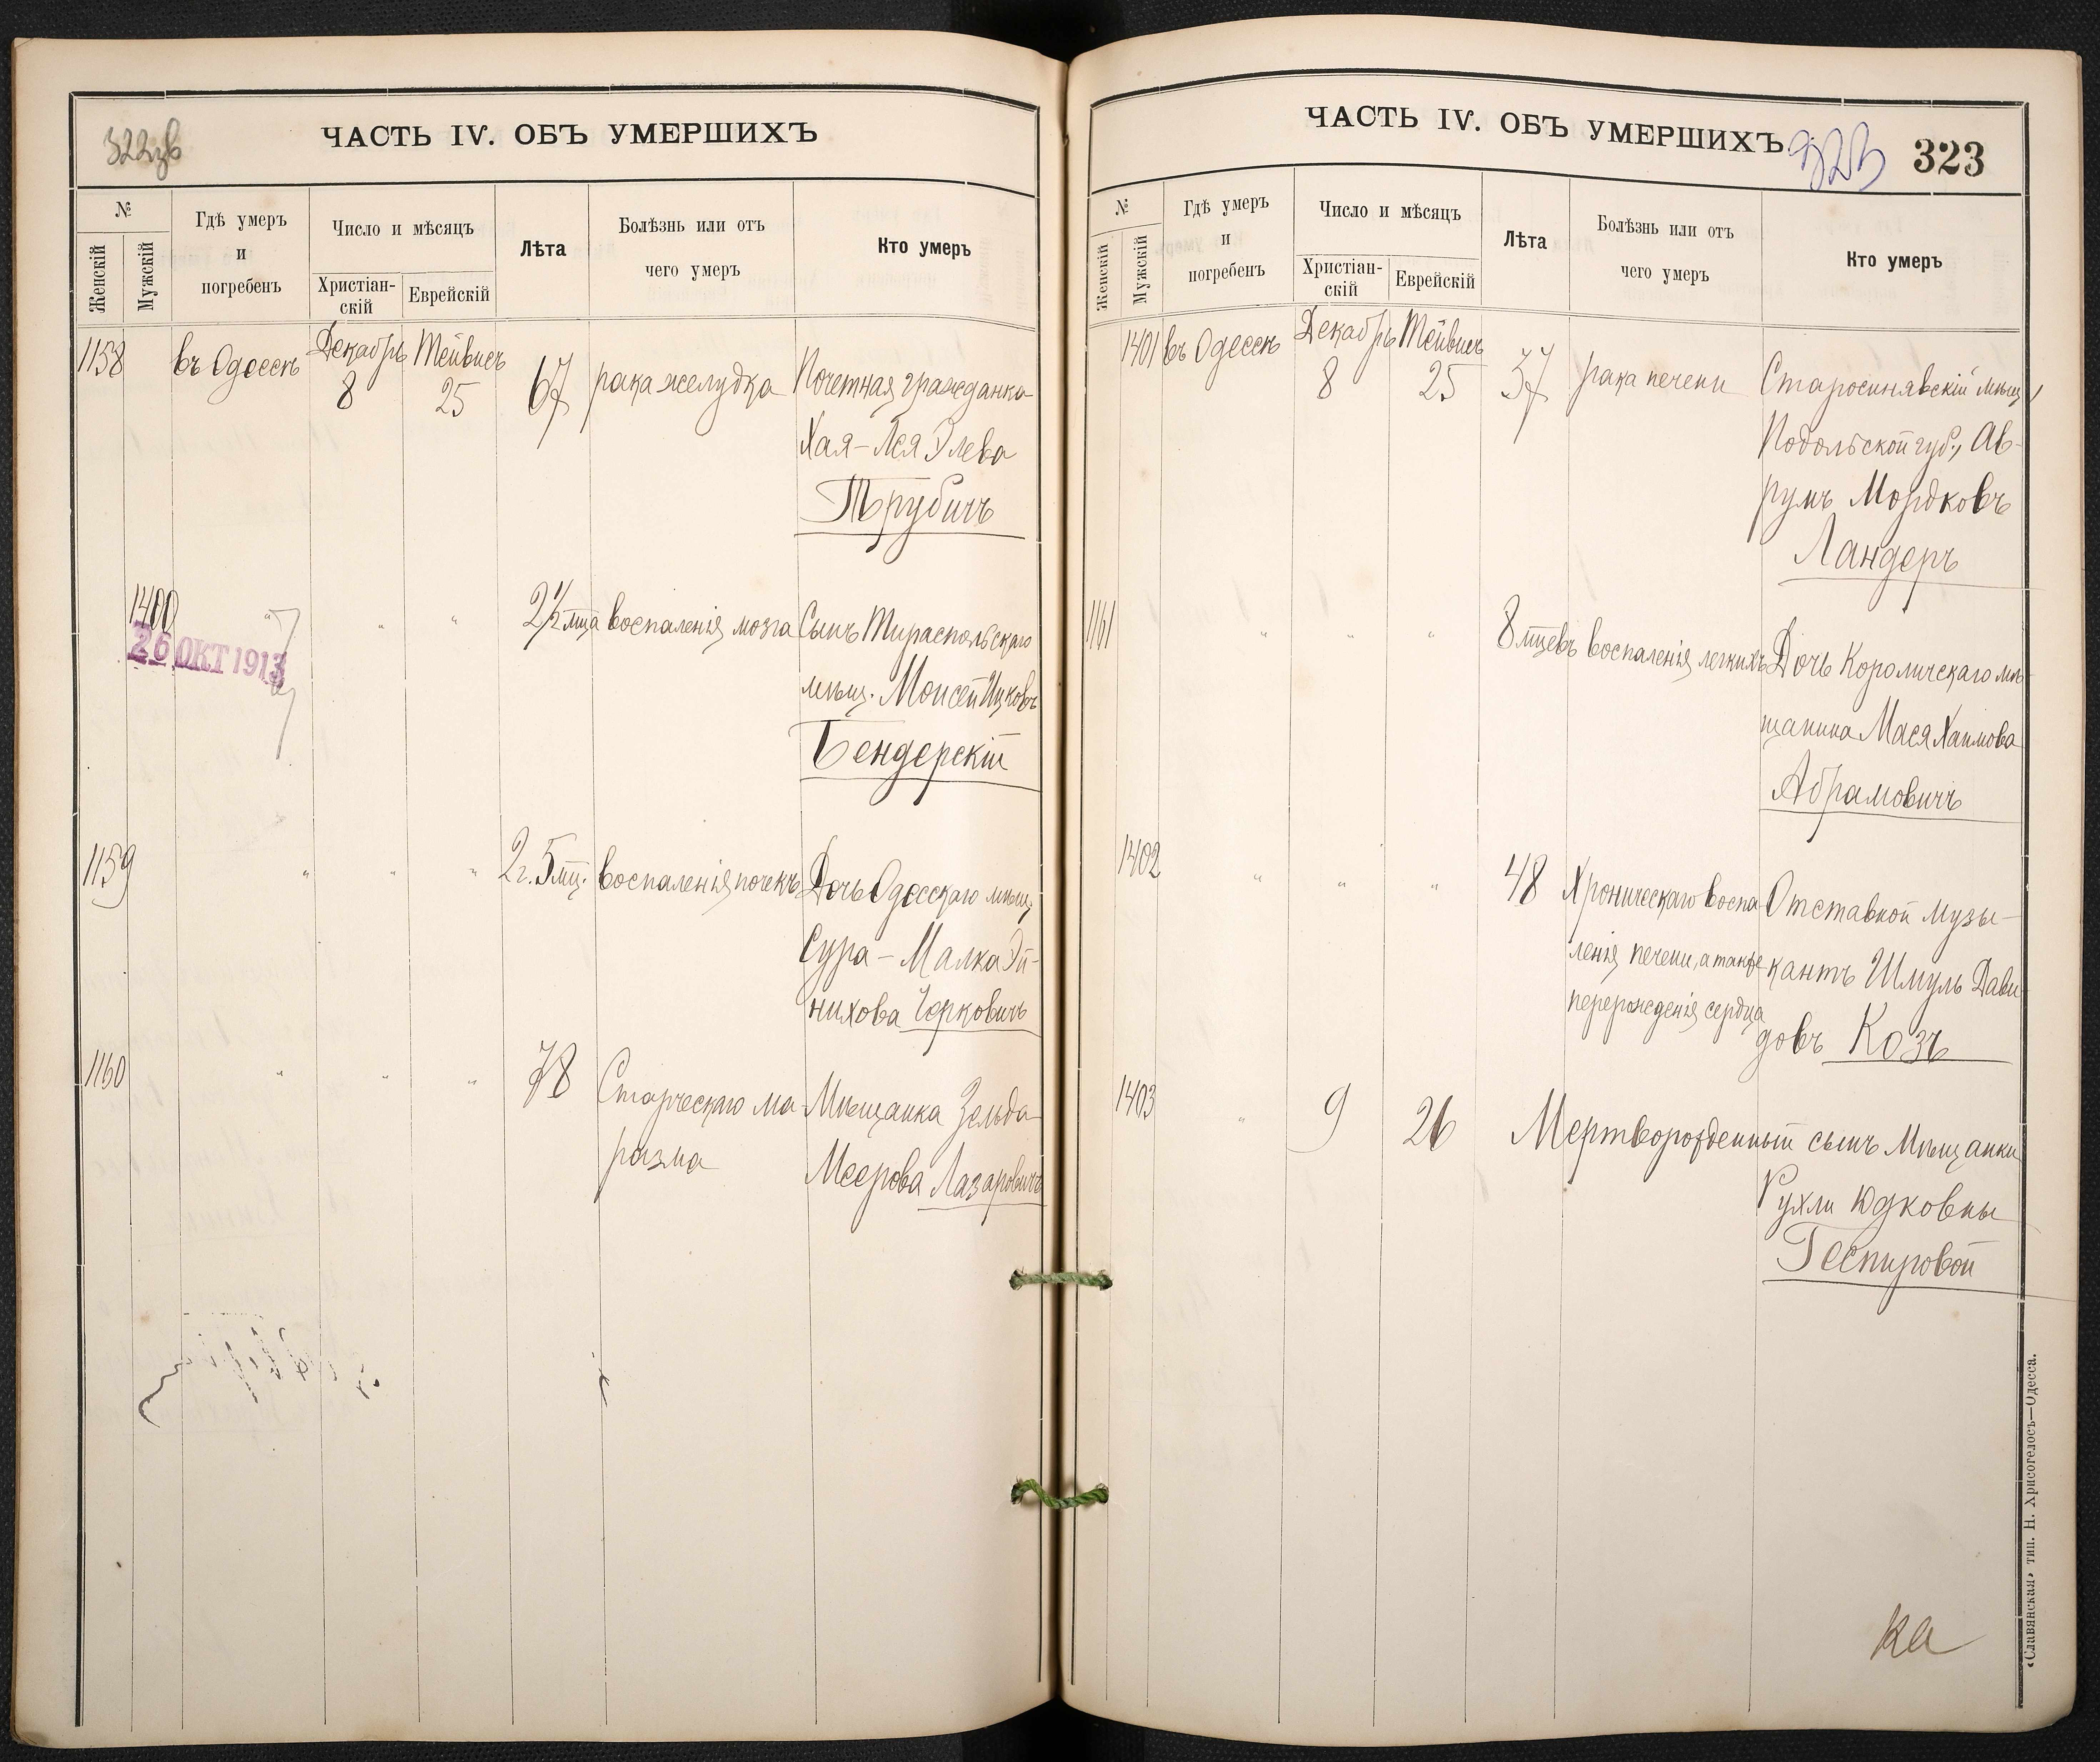 322 зв
ЧАСТЬ IV. ОБЪ УМЕРШИХЪ
№
Женскій
Мужскій
Гдѣ умеръ
и
погребенъ
Число и мѣсяцъ
Христіан-
скій
Еврейскій
Лѣта
Болѣзнь или отъ
чего умеръ
Кто умеръ
1158 въ Одессѣ Декабрь 8 Тейвисъ 25 67 рака желудка Почетная гражданка
Хая-Лея Элева
Трубичъ
1400 " " " 2½ мца воспаленія мозга Сынъ Тираспольскаго
26 ОКТ 1913
мѣщ. Моисей Ицковъ
Бендерскій
1159 " " " 2 г. 5 мц. воспаленія почекъ Дочь Одесскаго мѣщ.
Сура-Малка Эй-
нихова Чорковичъ
1160 " " " 78 Старческаго ма- Мѣщанка Зельда
разма Меерова Лазаровичъ
ЧАСТЬ IV. ОБЪ УМЕРШИХЪ
323 323
№
Женскій
Мужскій
Гдѣ умеръ
и
погребенъ
Число и мѣсяцъ
Христіан-
скій
Еврейскій
Лѣта
Болѣзнь или отъ
чего умеръ
Кто умеръ
1401 въ Одессѣ Декабрь 8 Тейвисъ 25 37 рака печени Старосинявскій мѣщ,
Подольской губ., Ав-
румъ Мордковъ
Ландеръ
1161 " " " 8 мцевъ воспаленія легкихъ Дочь Короличскаго мѣ-
щанина Мася Хаимова
Абрамовичъ
1402 " " " 48 Хроническаго воспа- Отставной музы-
ленія печени, а также кантъ Шмуль Дави-
перерожденія сердца довъ Козъ
1403 " 9 26 Мертворожденный сынъ Мѣщанки
Рухли Юдковны
Геспировой
ка
«Славянская» тип. Н. Хрисогелосъ—Одесса.